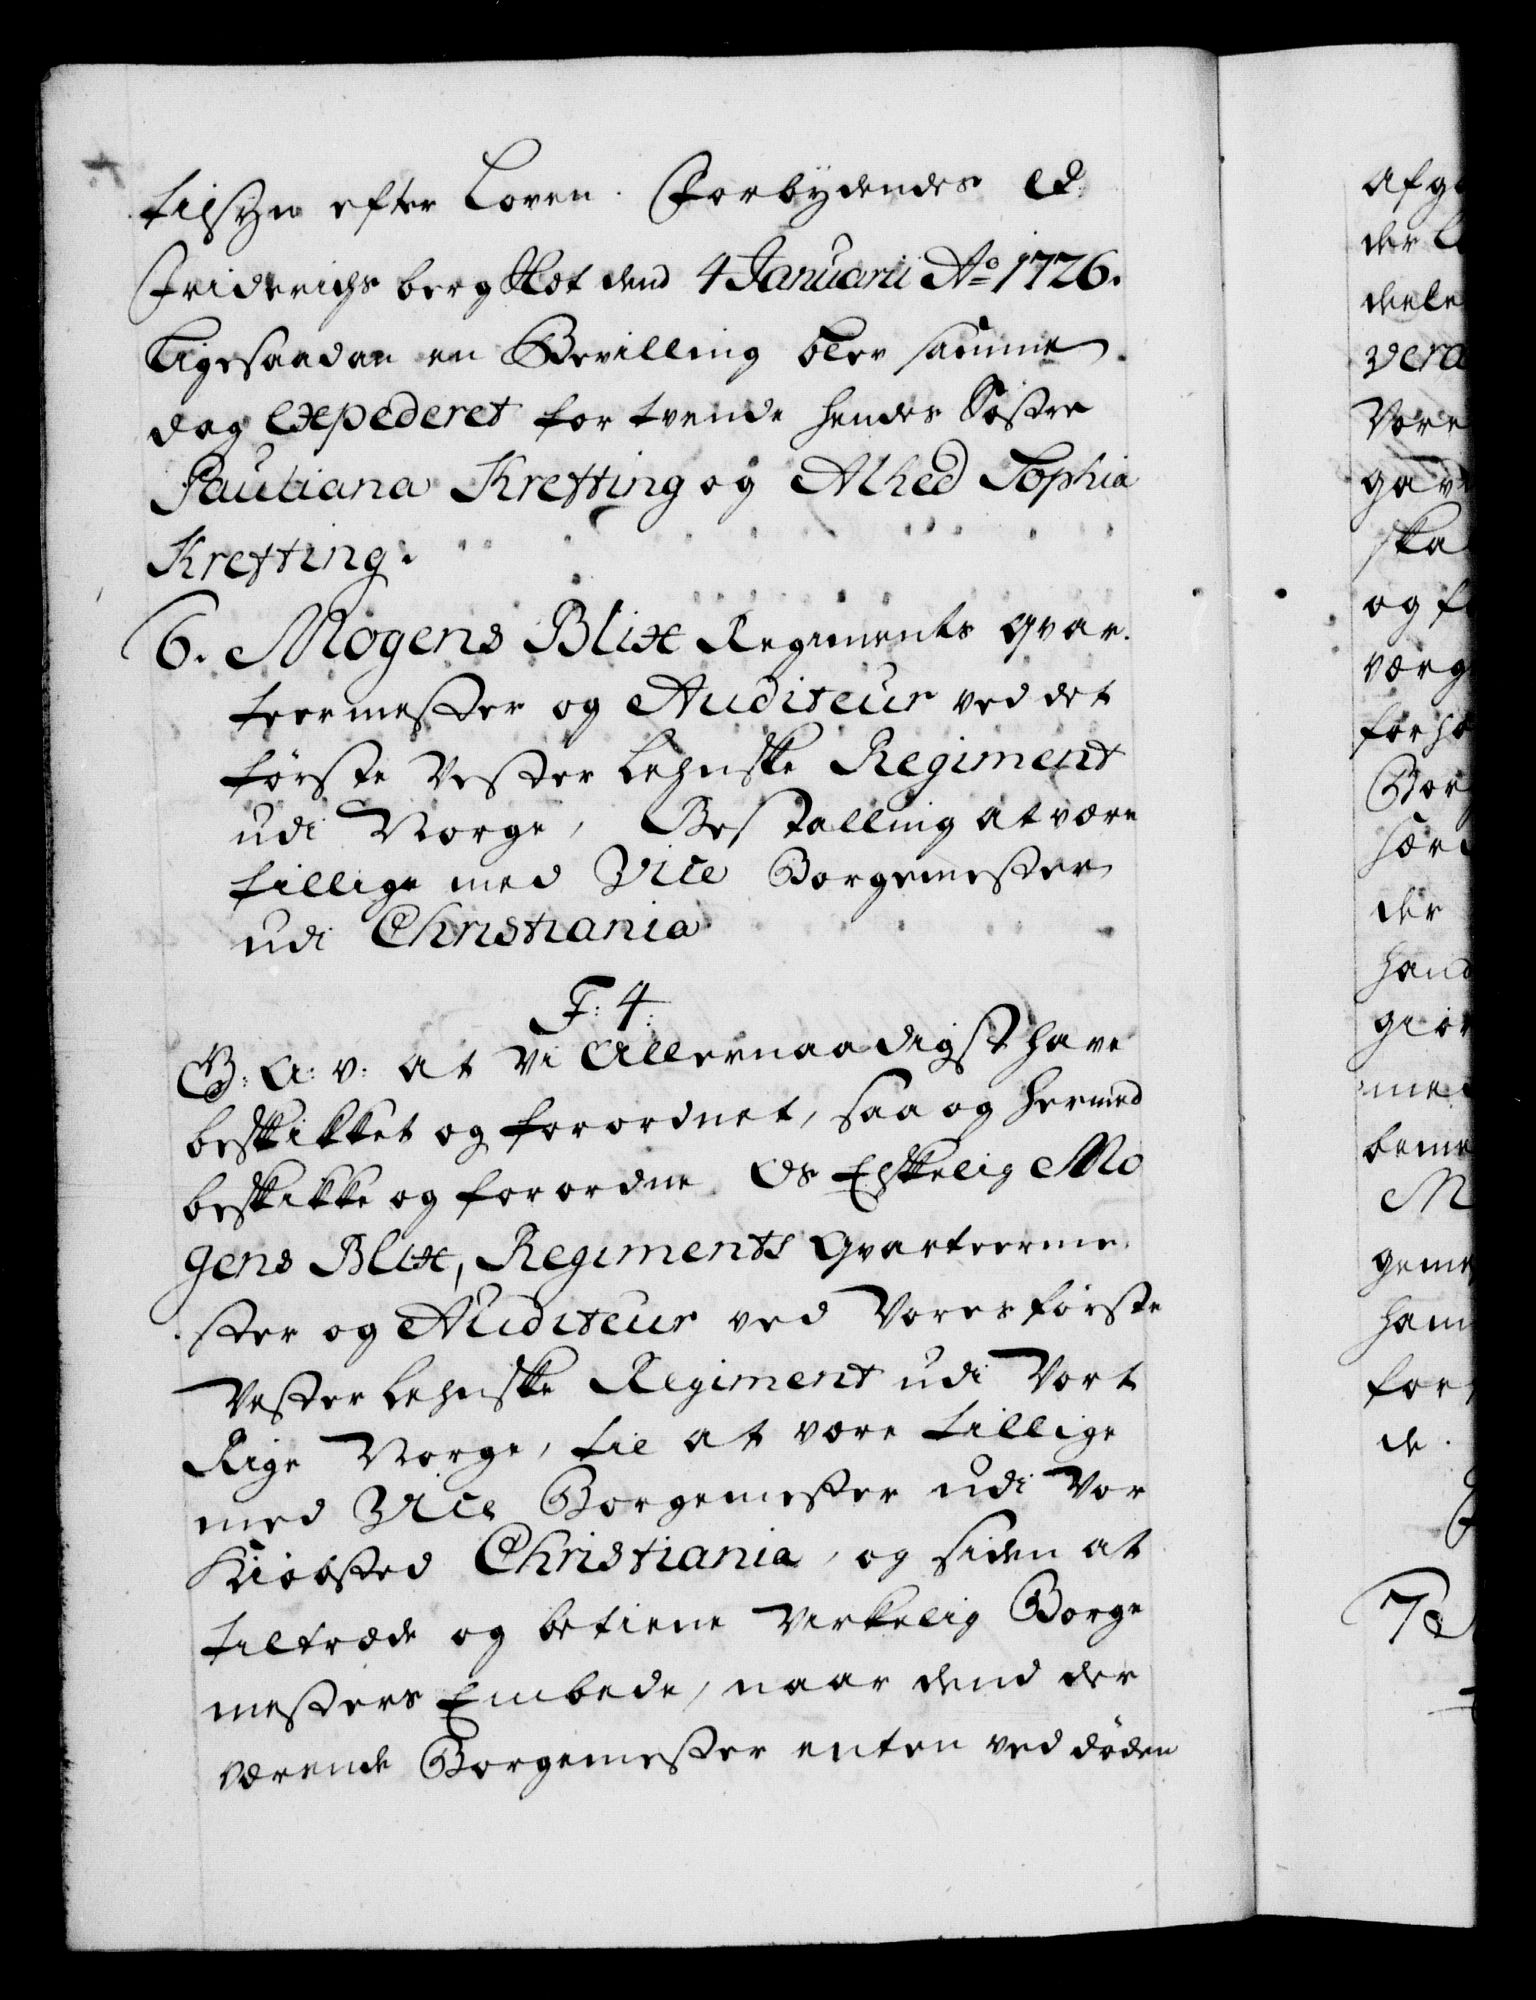 tilsyn efter Loven. Forbydendes &.
Friderichsberg Slot dend 4 Januarii Ao 1726.
Ligesaadan en Bevilling blev samme
dag expederet for tvende hendes Søstre
Pauliana Krefting og Alhed Sophia
Krefting.
6. Mogens Blix Regiments Qvar-
teermester og Auditeur ved det
første Vesterlehnske Regiment
udi Norge, Bestalling at være
tillige med Vice Borgemester
udi Christiania
F: 4:
G: A: v: at Vi Allernaadigst have
beskikket og forordnet, saa og hermed
beskikke og forordne Os Elskelig Mo
gens Blix, Regiments Qvarteerme-
ster og Auditeur ved Vores første
Vesterlehnske Regiment udi Vort
Rige Norge, til at være tillige
med Vice Borgemester udi Vor
Kiøbsted Christiania, og siden at
tiltræde og betiene Virkelig Borge
mesters Embede, naar dend der
værende Borgemester enten ved døden
afg
der
deele
vera
Vore
gav
ska
og f
værg
forho
Bor
hær
der
hand
giør
me
beme
M
geme
ham
for
de.
7